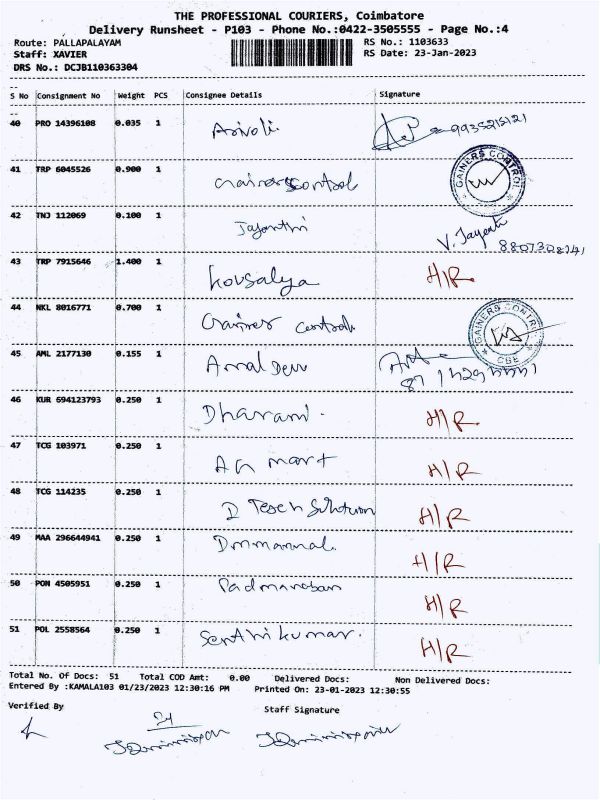 THE PROFESSIONAL COURIERS, Coimbatore
Delivery Runsheet - P103 - Phone No.:0422-3505555 - Page No.:4
Route: PALLAPALAYAM RS No.: 1103633
Staff: XAVIER RS Date: 23-Jan-2023
DRS No.: DCJB110363304
S No Consignment No Weight PCS Consignee Details Signature
40 PRO 14396108 0.035 1 Arivoli
41 TRP 6045526 0.900 1 Gainers control GAINERS CONTROL
42 TNJ 112069 0.100 1 Jayanthi V. Jayanti
43 TRP 7915646 1.400 1 Kousalya H/R
44 NKL 8016771 0.700 1 Gainer control GAINERS CONTROL CBE
45 AML 2177130 0.155 1 Amal
46 KUR 694123793 0.250 1 Dharani. H/R
47 TCG 103971 0.250 1 mart H/R
48 TCG 114235 0.250 1 H/R
49 MAA 296644941 0.250 1 H/R
50 PON 4505951 0.250 1 H/R
51 POL 2558564 0.250 1 Senthikumar. H/R
Total No. Of Docs: 51 Total COD Amt: 0.00 Delivered Docs: Non Delivered Docs:
Entered By :KAMALA103 01/23/2023 12:30:16 PM Printed On: 23-01-2023 12:30:55
Verified By Staff Signature